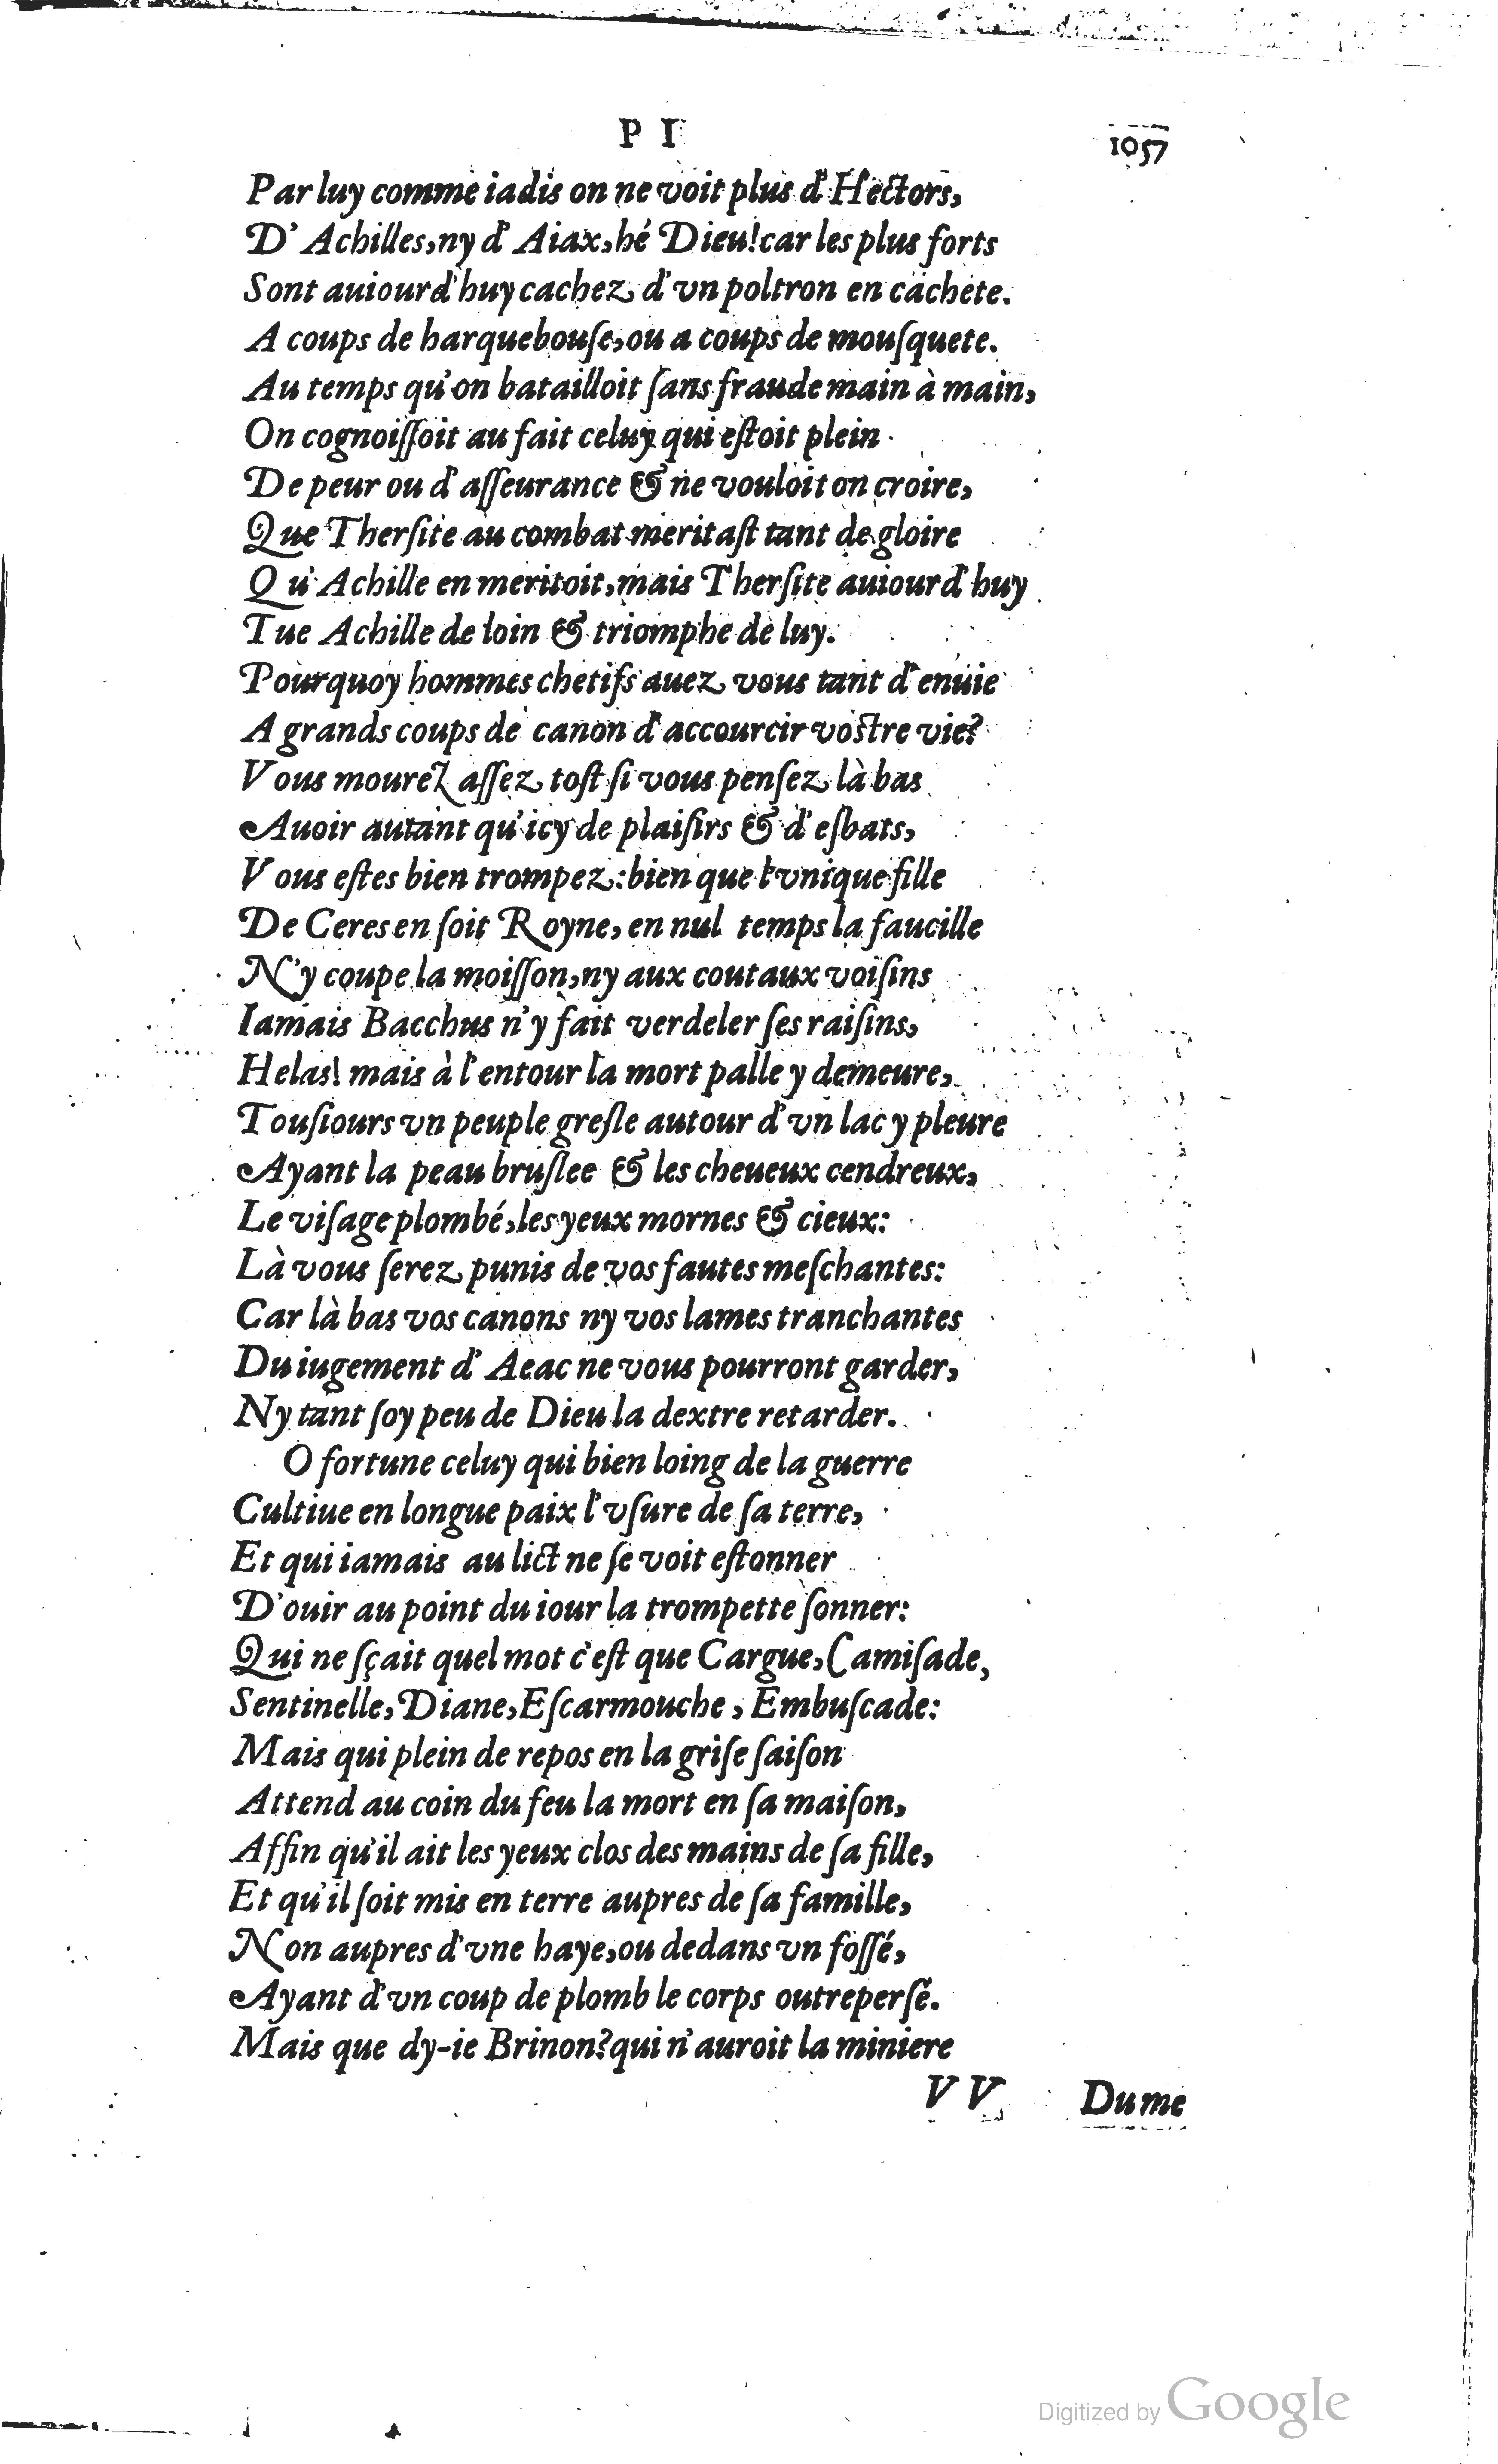 P I
1057
Par luy comme iadis on ne voit plus d'Hectors,
D' Achilles, ny d' Aiax, hé Dieu! car les plus forts
Sont auiourd'huy cachez d'vn poltron en cachete.
A coups de harquebouſe, ou a coups de mouſquete.
Au temps qu'on batailloit ſans fraude main à main,
On cognoiſſoit au fait celuy qui eſtoit plein
De peur ou d'aſſeurance & ne vouloit on croire,
Que Therſite au combat meritaſt tant de gloire
Qu'Achille en meritoit, mais Therſite auiourd'huy
Tue Achille de loin & triomphe de luy.
Pourquoy hommes chetifs auez vous tant d'enuie
A grands coups de canon d'accourcir voſtre vie?
Vous mourez aſſez toſt ſi vous penſez là bas
Auoir autant qu'icy de plaiſirs & d'eſbats,
Vous eſtes bien trompez: bien que l'vnique fille
De Ceres en ſoit Royne, en nul temps la faucille
N'y coupe la moiſſon, ny aux coutaux voiſins
Iamais Bacchus n'y fait verdeler ſes raiſins,
Helas! mais à l'entour la mort palle y demeure,
Touſiours vn peuple greſle autour d'vn lac y pleure
Ayant la peau bruſlee & les cheueux cendreux,
Le viſage plombé, les yeux mornes & cieux:
Là vous ſerez punis de vos fautes meſchantes:
Car là bas vos canons ny vos lames tranchantes
Du iugement d' Aeac ne vous pourront garder,
Ny tant ſoy peu de Dieu la dextre retarder.
O fortune celuy qui bien loing de la guerre
Cultiue en longue paix l'vſure de ſa terre,
Et qui iamais au lict ne ſe voit eſtonner
D'ouir au point du iour la trompette ſonner:
Qui ne ſçait quel mot c'eſt que Cargue, Camiſade,
Sentinelle, Diane, Eſcarmouche, Embuſcade:
Mais qui plein de repos en la griſe ſaiſon
Attend au coin du feu la mort en ſa maiſon,
Affin qu'il ait les yeux clos des mains de ſa fille,
Et qu'il ſoit mis en terre aupres de ſa famille,
Non aupres d'vne haye, ou dedans vn foſſé,
Ayant d'vn coup de plomb le corps outreperſé.
Mais que dy-ie Brinon? qui n'auroit la miniere
VV Du me
Digitized by Google